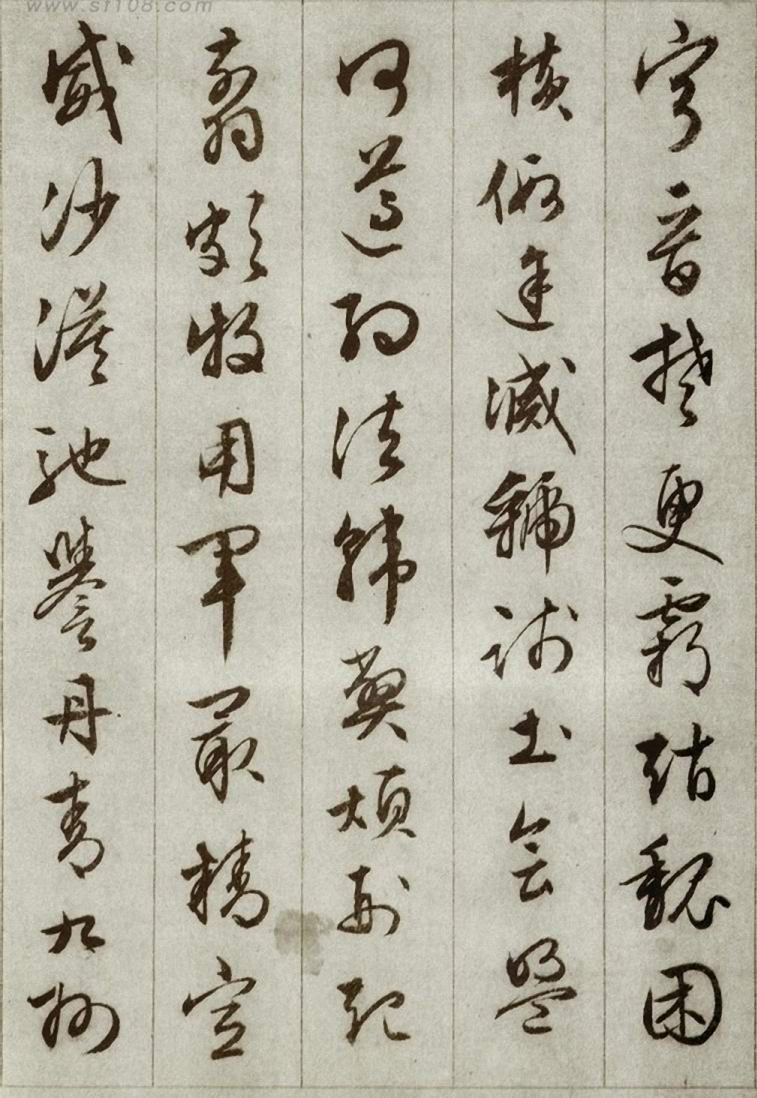 www.sf108.com
寧晉楚更霸趙魏困
橫假途滅虢踐土會盟
何遵約法韓弊煩刑起
翦頗牧用軍最精宣
威沙漠馳譽丹青九州